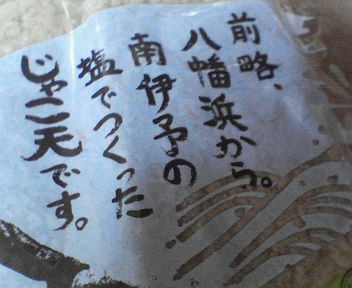 前略、
八幡浜から。
南伊予の
塩でつくった
じゃこ天です。